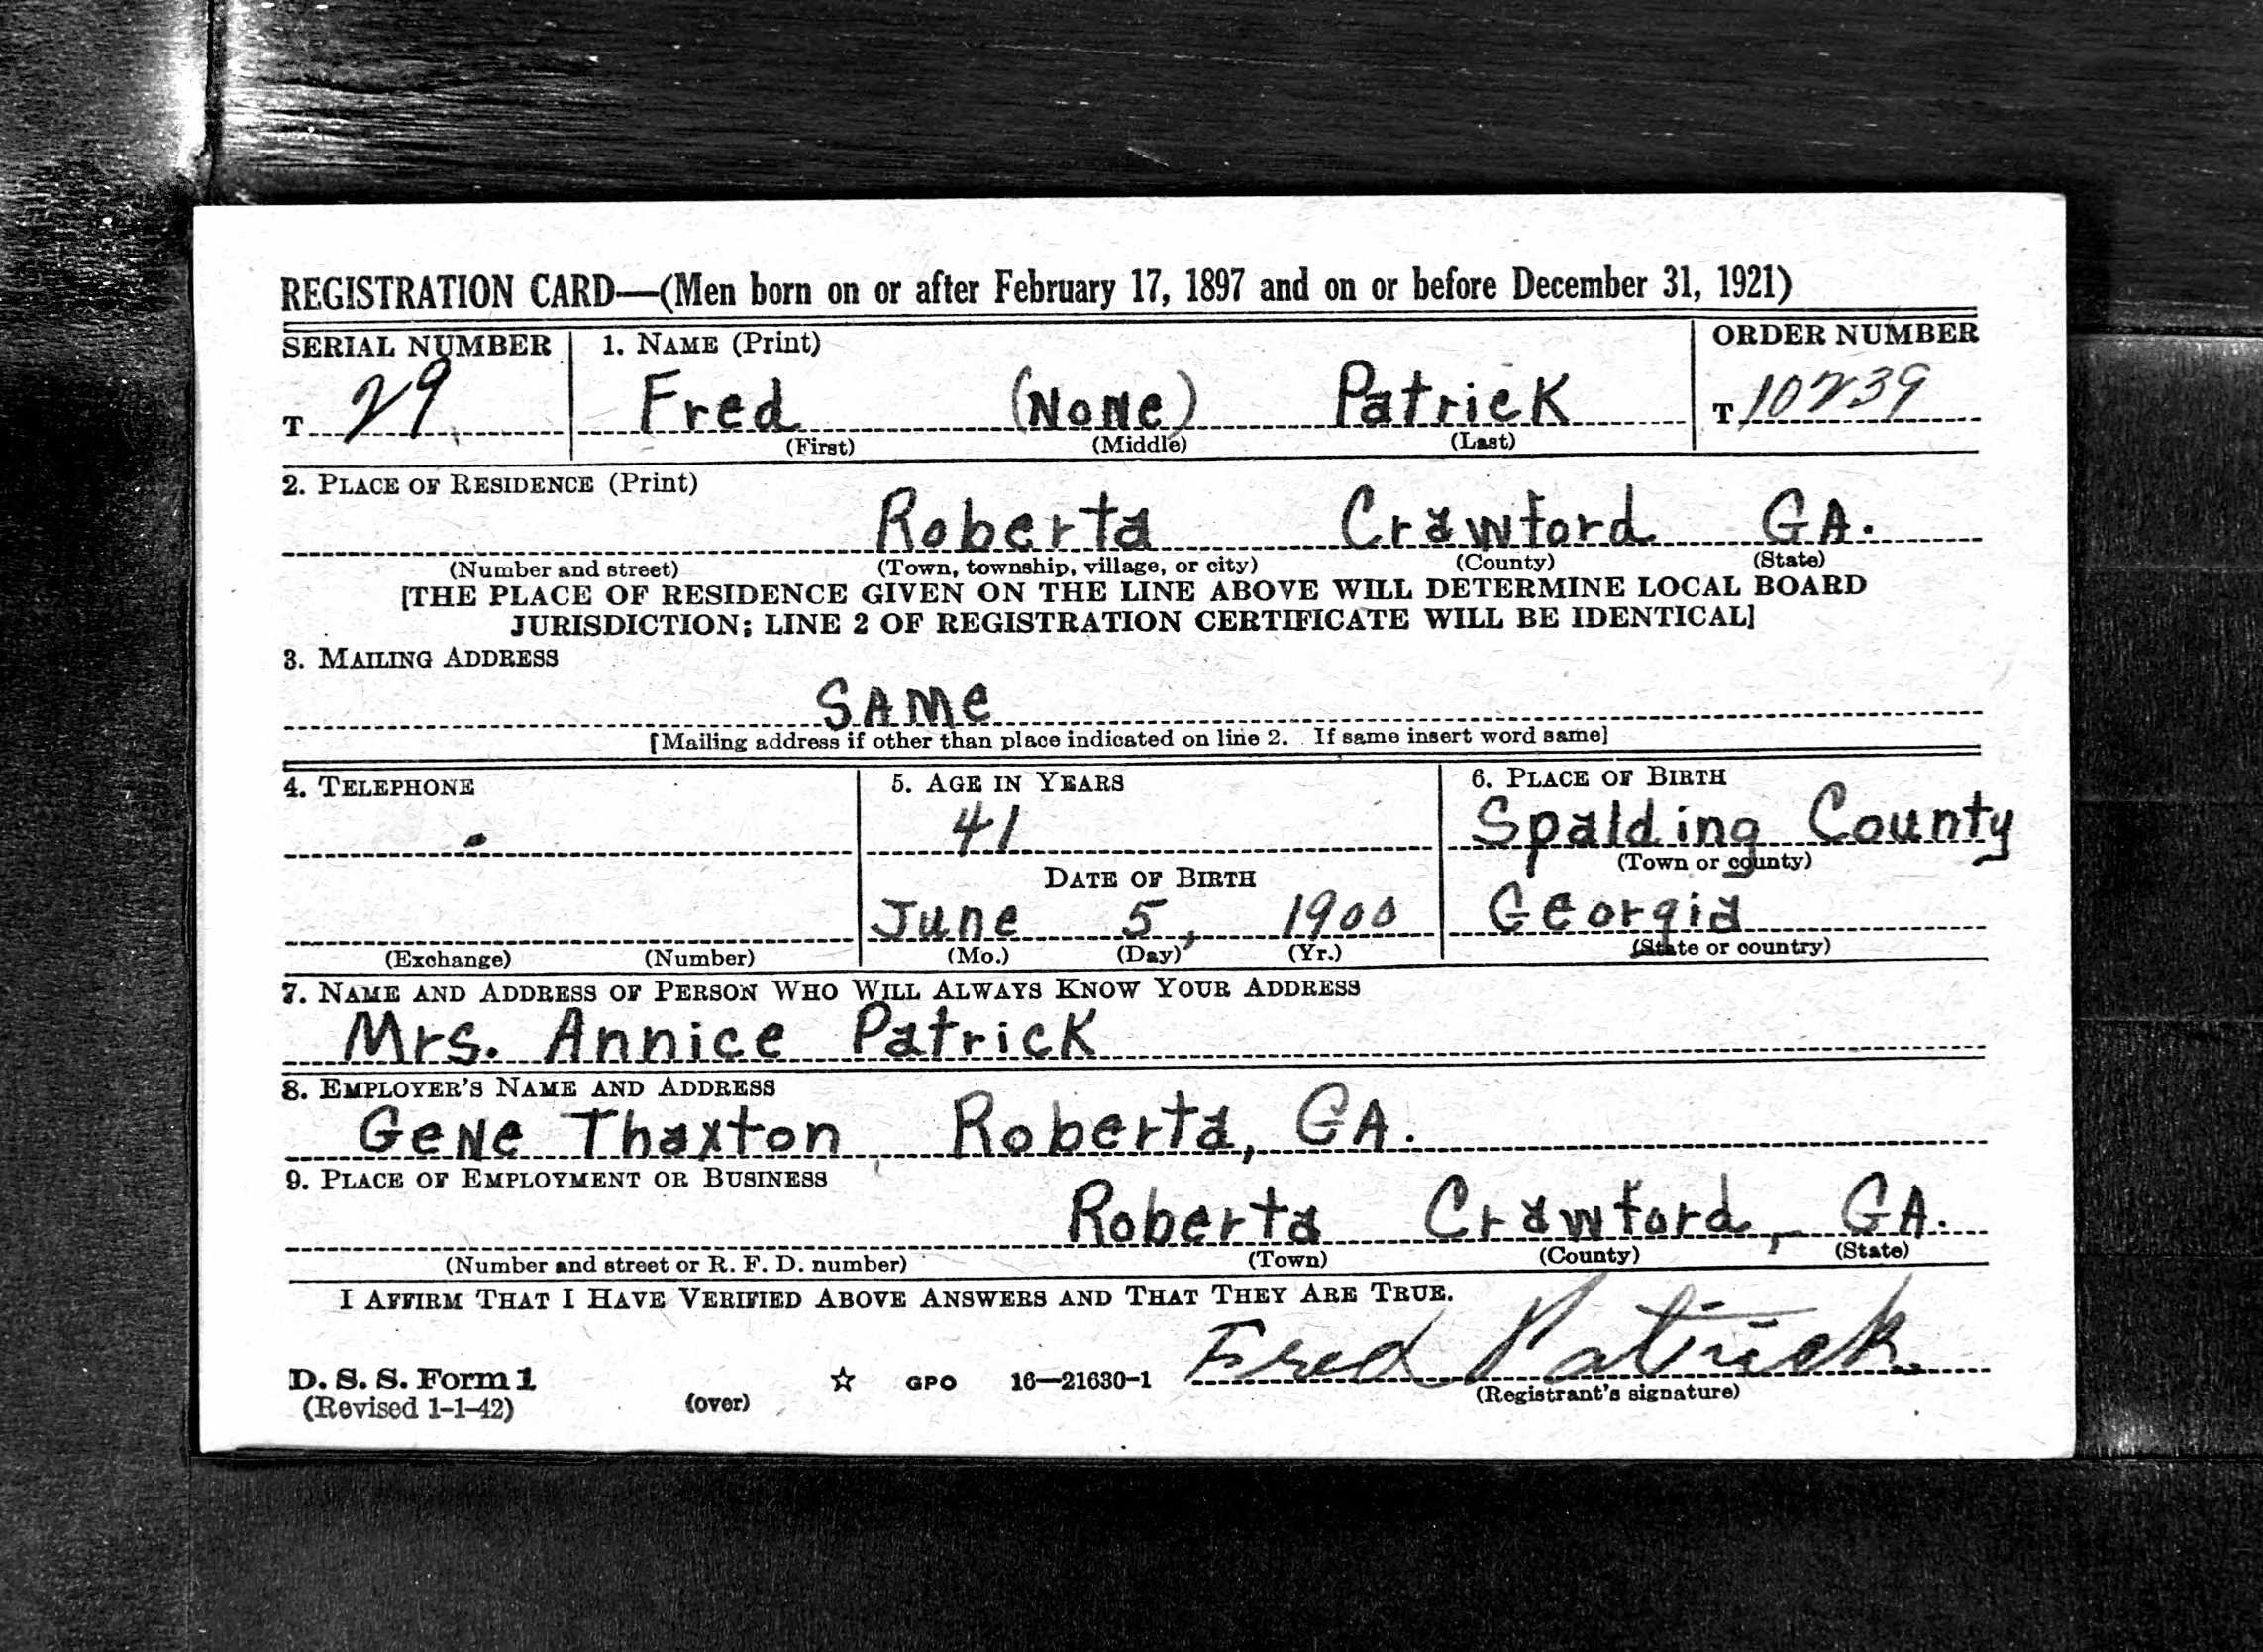 REGISTRATION CARD—(Men born on or after February 17, 1897 and on or before December 31, 1921)
SERIAL NUMBER 1. NAME (Print) ORDER NUMBER
T 29 Fred (None) Patrick T 10239
(First) (Middle) (Last)
2. PLACE OF RESIDENCE (Print)
Roberta Crawford GA.
(Number and street) (Town, township, village, or city) (County) (State)
[THE PLACE OF RESIDENCE GIVEN ON THE LINE ABOVE WILL DETERMINE LOCAL BOARD
JURISDICTION; LINE 2 OF REGISTRATION CERTIFICATE WILL BE IDENTICAL]
3. MAILING ADDRESS
SAMe
[Mailing address if other than place indicated on line 2. If same insert word same]
4. TELEPHONE 5. AGE IN YEARS 6. PLACE OF BIRTH
41 Spalding County
(Town or county)
DATE OF BIRTH
June 5, 1900 Georgia
(Exchange) (Number) (Mo.) (Day) (Yr.) (State or country)
7. NAME AND ADDRESS OF PERSON WHO WILL ALWAYS KNOW YOUR ADDRESS
Mrs. Annice Patrick
8. EMPLOYER'S NAME AND ADDRESS
Gene Thaxton Roberta, GA.
9. PLACE OF EMPLOYMENT OR BUSINESS
Roberta Crawford, GA.
(Number and street or R. F. D. number) (Town) (County) (State)
I AFFIRM THAT I HAVE VERIFIED ABOVE ANSWERS AND THAT THEY ARE TRUE.
Fred Patrick
D. S. S. Form 1 (over) ☆ GPO 16—21630-1 (Registrant's signature)
(Revised 1-1-42)